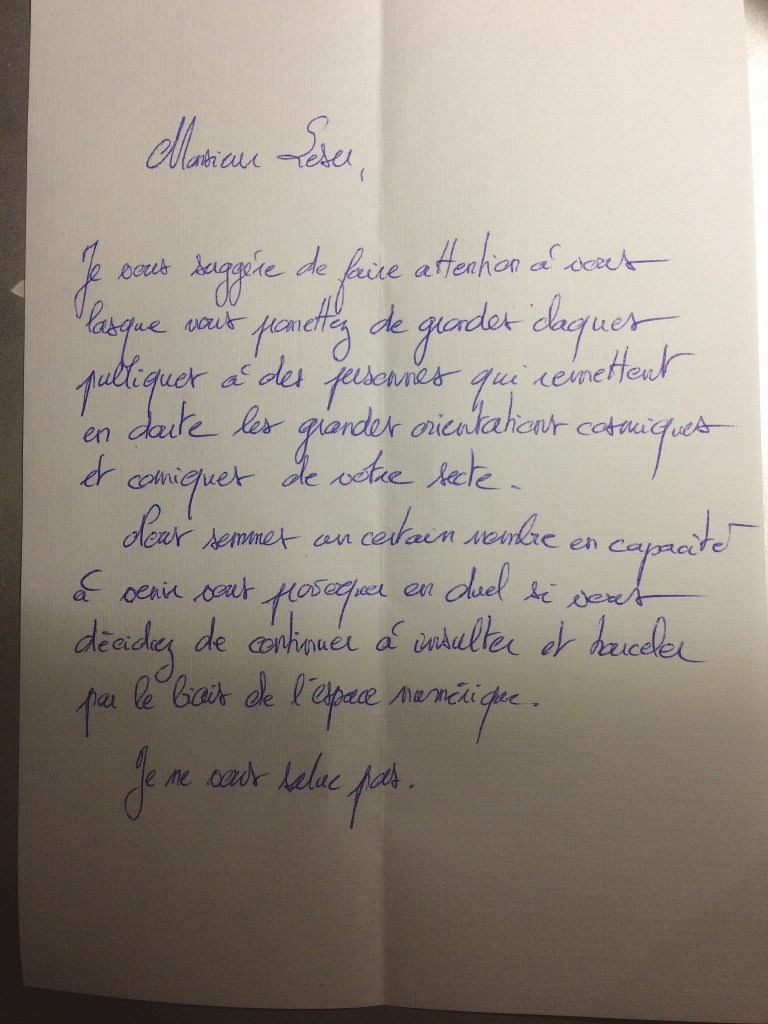 Monsieur Leseu,
Je vous suggére de faire attention à vous
lorsque vous promettez de grandes claques
publiques à des personnes qui remettent
en doute les grandes orientations cosmiques
et comiques de votre secte.
Nous sommes un certain nombre en capacité
à venir vous provoquer en duel si vous
décidez de continuer à insulter et harceler
par le biais de l'espace numérique.
Je ne vous salue pas.